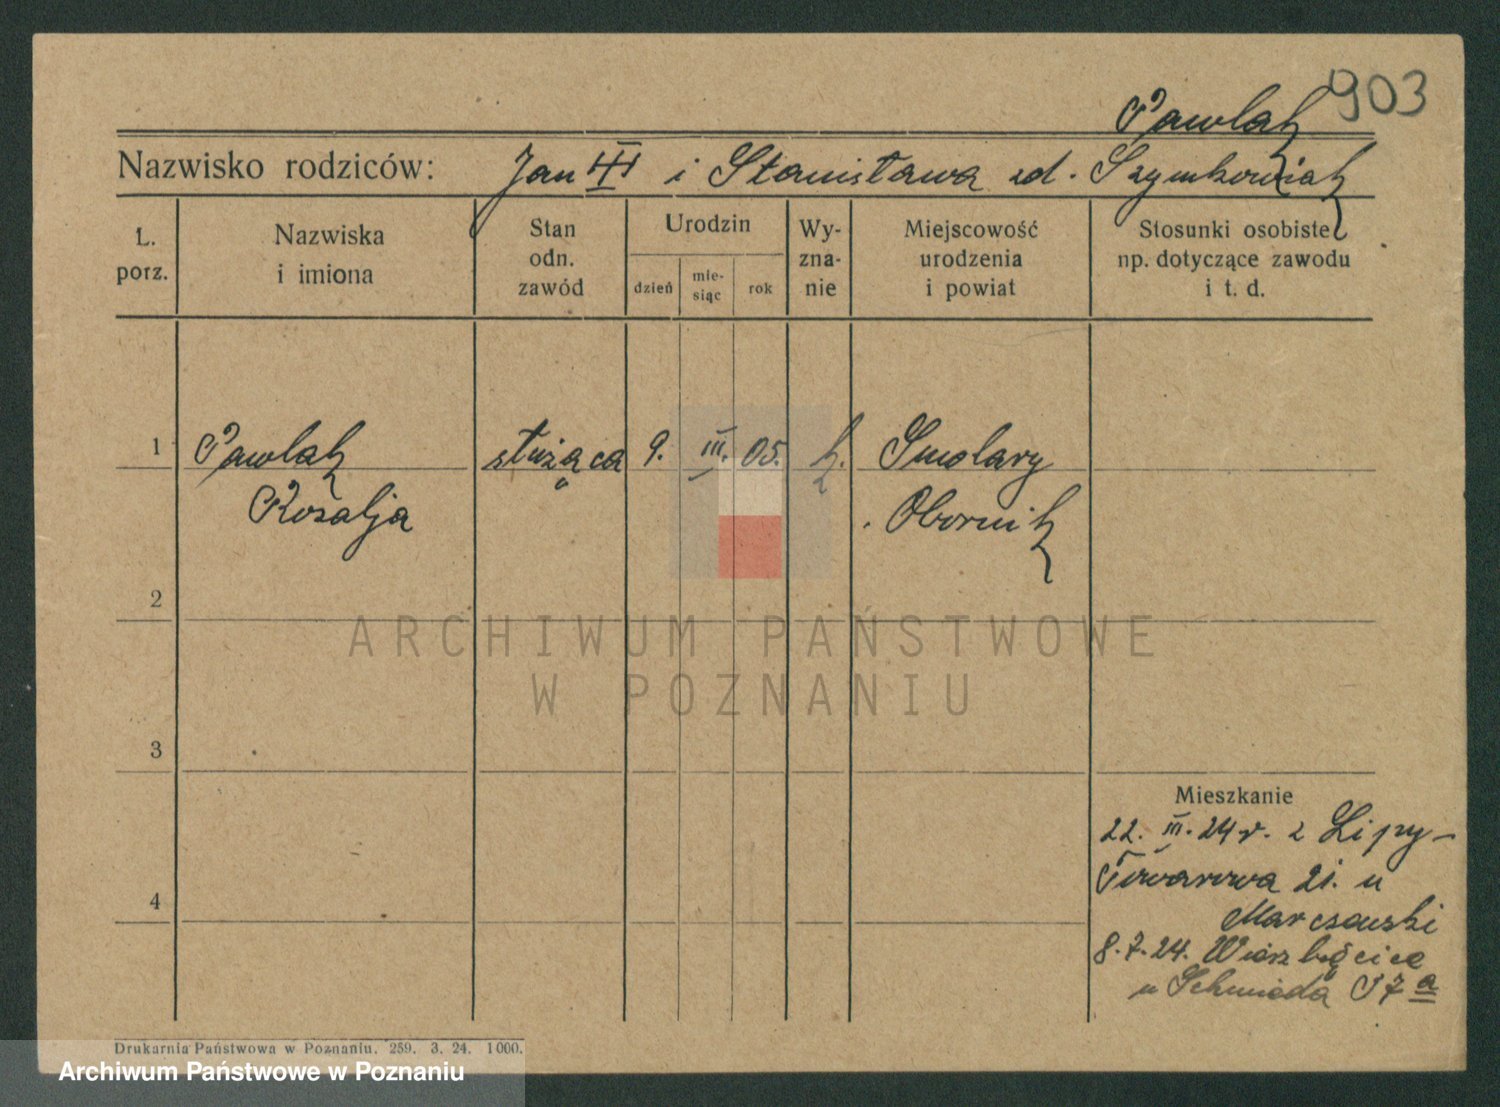 903
Pawlak
Nazwisko rodziców: Jan i Stanisława zd. Szymkowiak
L. porz.
Nazwiska i imiona
Stan odn. zawód
Urodzin
dzień
mie-siąc
rok
Wy-zna-nie
Miejscowość urodzenia i powiat
Stosunki osobiste np. dotyczące zawodu i t. d.
1 Pawlak służąca 9. III. 05. k. Smolary
Rozalja Obornik
2
ARCHIWUM PAŃSTWOWE
W POZNANIU
3
Mieszkanie
22. III. 24 r. z Lipy -
Towarowa 21. u
4
Marczewski
8.7.24. Wierzbięcice
u Schmieda 37a
Drukarnia Państwowa w Poznaniu. 259. 3. 24. 1000.
Archiwum Państwowe w Poznaniu